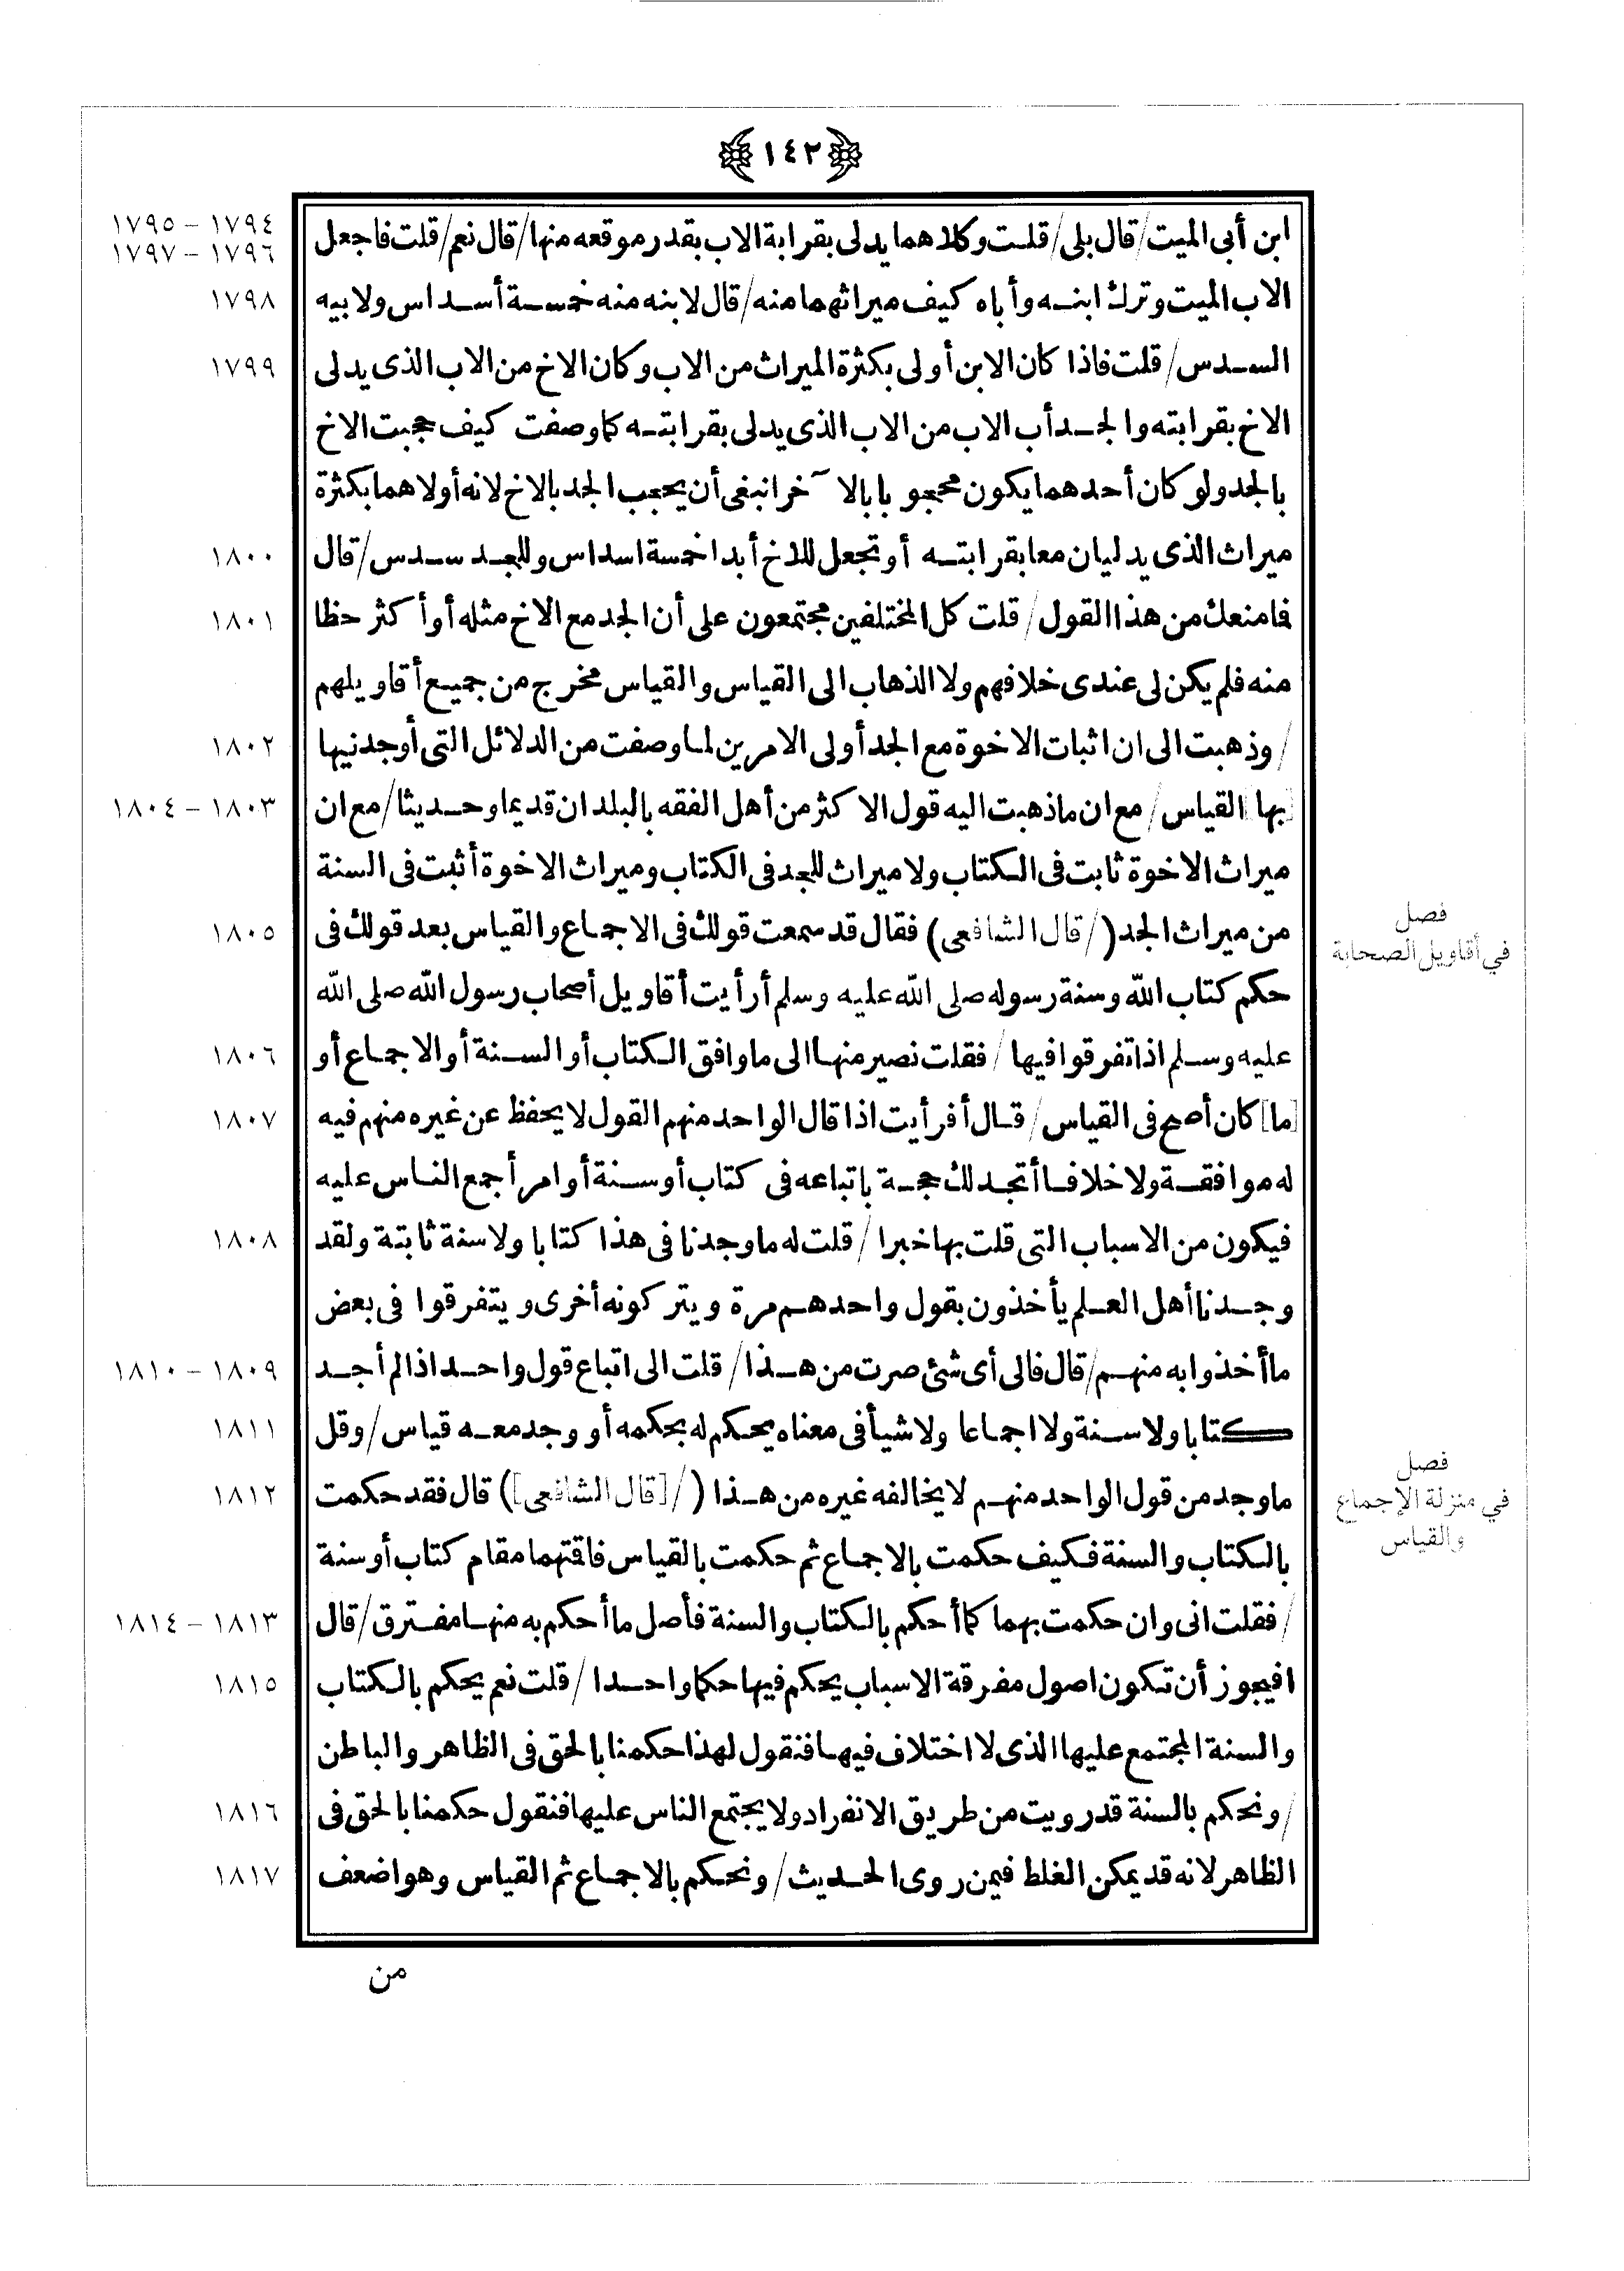 ١٤٢
١٧٩٤ – ١٧٩٥
١٧٩٦ – ١٧٩٧
ابن أبى الميت/قال بلى/قلت وكلاهما يدلى بقرابة الاب بقدر موقعه منها/قال نعم/قلت فاجعل
١٧٩٨
الاب الميت وترك ابنه وأباه كيف ميراثهما منه/قال لابنه منه خمسة أسداس ولابيه
١٧٩٩
السدس/قلت فاذا كان الابن أولى بكثرة الميراث من الاب وكان الاخ من الاب الذى يدلى
الاخ بقرابته والجد أب الاب من الاب الذى يدلى بقرابته كما وصفت كيف حجبت الاخ
بالجد ولو كان أحدهما يكون محجوبا بالآخر انبغى أن يحجب الجد بالاخ لانه أولاهما بكثرة
١٨٠٠
ميراث الذى يدليان معا بقرابته أو تجعل للاخ أبدا خمسة اسداس وللجد سدس/قال
١٨٠١
فما منعك من هذا القول/قلت كل المختلفين مجتمعون على أن الجد مع الاخ مثله أو أكثر حظا
منه فلم يكن لى عندى خلافهم ولا الذهاب الى القياس والقياس مخرج من جميع أقاويلهم
١٨٠٢
/وذهبت الى ان اثبات الاخوة مع الجد أولى الامرين لما وصفت من الدلائل التى أوجدنيها
١٨٠٣ – ١٨٠٤
[بها] القياس/مع ان ما ذهبت اليه قول الاكثر من أهل الفقه بالبلدان قديما وحديثا/مع ان
ميراث الاخوة ثابت فى الكتاب ولا ميراث للجد فى الكتاب وميراث الاخوة أثبت فى السنة
فصل
في أقاويل الصحابة
١٨٠٥
من ميراث الجد (/قال الشافعى) فقال قد سمعت قولك فى الاجماع والقياس بعد قولك فى
حكم كتاب الله وسنة رسوله صلى الله عليه وسلم أرأيت أقاويل أصحاب رسول الله صلى الله
١٨٠٦
عليه وسلم اذا تفرقوا فيها/فقلت نصير منها الى ما وافق الكتاب أو السنة أو الاجماع أو
١٨٠٧
[ما] كان أصح فى القياس/قال أفرأيت اذا قال الواحد منهم القول لا يحفظ عن غيره منهم فيه
له موافقة ولا خلافا أتجد لك حجة باتباعه فى كتاب أو سنة أو امر أجمع الناس عليه
١٨٠٨
فيكون من الاسباب التى قلت بها خبرا/قلت له ما وجدنا فى هذا كتابا ولا سنة ثابتة ولقد
وجدنا أهل العلم يأخذون بقول واحدهم مرة ويتركونه أخرى ويتفرقوا فى بعض
١٨٠٩ – ١٨١٠
ما أخذوا به منهم/قال فالى أى شئ صرت من هذا/قلت الى اتباع قول واحد اذا لم أجد
١٨١١
كتابا ولا سنة ولا اجماعا ولا شيأ فى معناه يحكم له بحكمه أو وجد معه قياس/وقل
فصل
في منزلة الإجماع
والقياس
١٨١٢
ما وجد من قول الواحد منهم لا يخالفه غيره من هذا (/[قال الشافعى]) قال فقد حكمت
بالكتاب والسنة فكيف حكمت بالاجماع ثم حكمت بالقياس فاقتهما مقام كتاب أو سنة
١٨١٣ – ١٨١٤
/فقلت انى وان حكمت بهما كما أحكم بالكتاب والسنة فأصل ما أحكم به منها مفترق/قال
١٨١٥
افيجوز أن تكون اصول مفرقة الاسباب يحكم فيها حكما واحدا/قلت نعم يحكم بالكتاب
والسنة المجتمع عليها الذى لا اختلاف فيها فنقول لهذا حكمنا بالحق فى الظاهر والباطن
١٨١٦
/ونحكم بالسنة قد رويت من طريق الانفراد ولا يجتمع الناس عليها فنقول حكمنا بالحق فى
١٨١٧
الظاهر لانه قد يمكن الغلط فيمن روى الحديث/ونحكم بالاجماع ثم القياس وهو اضعف
من